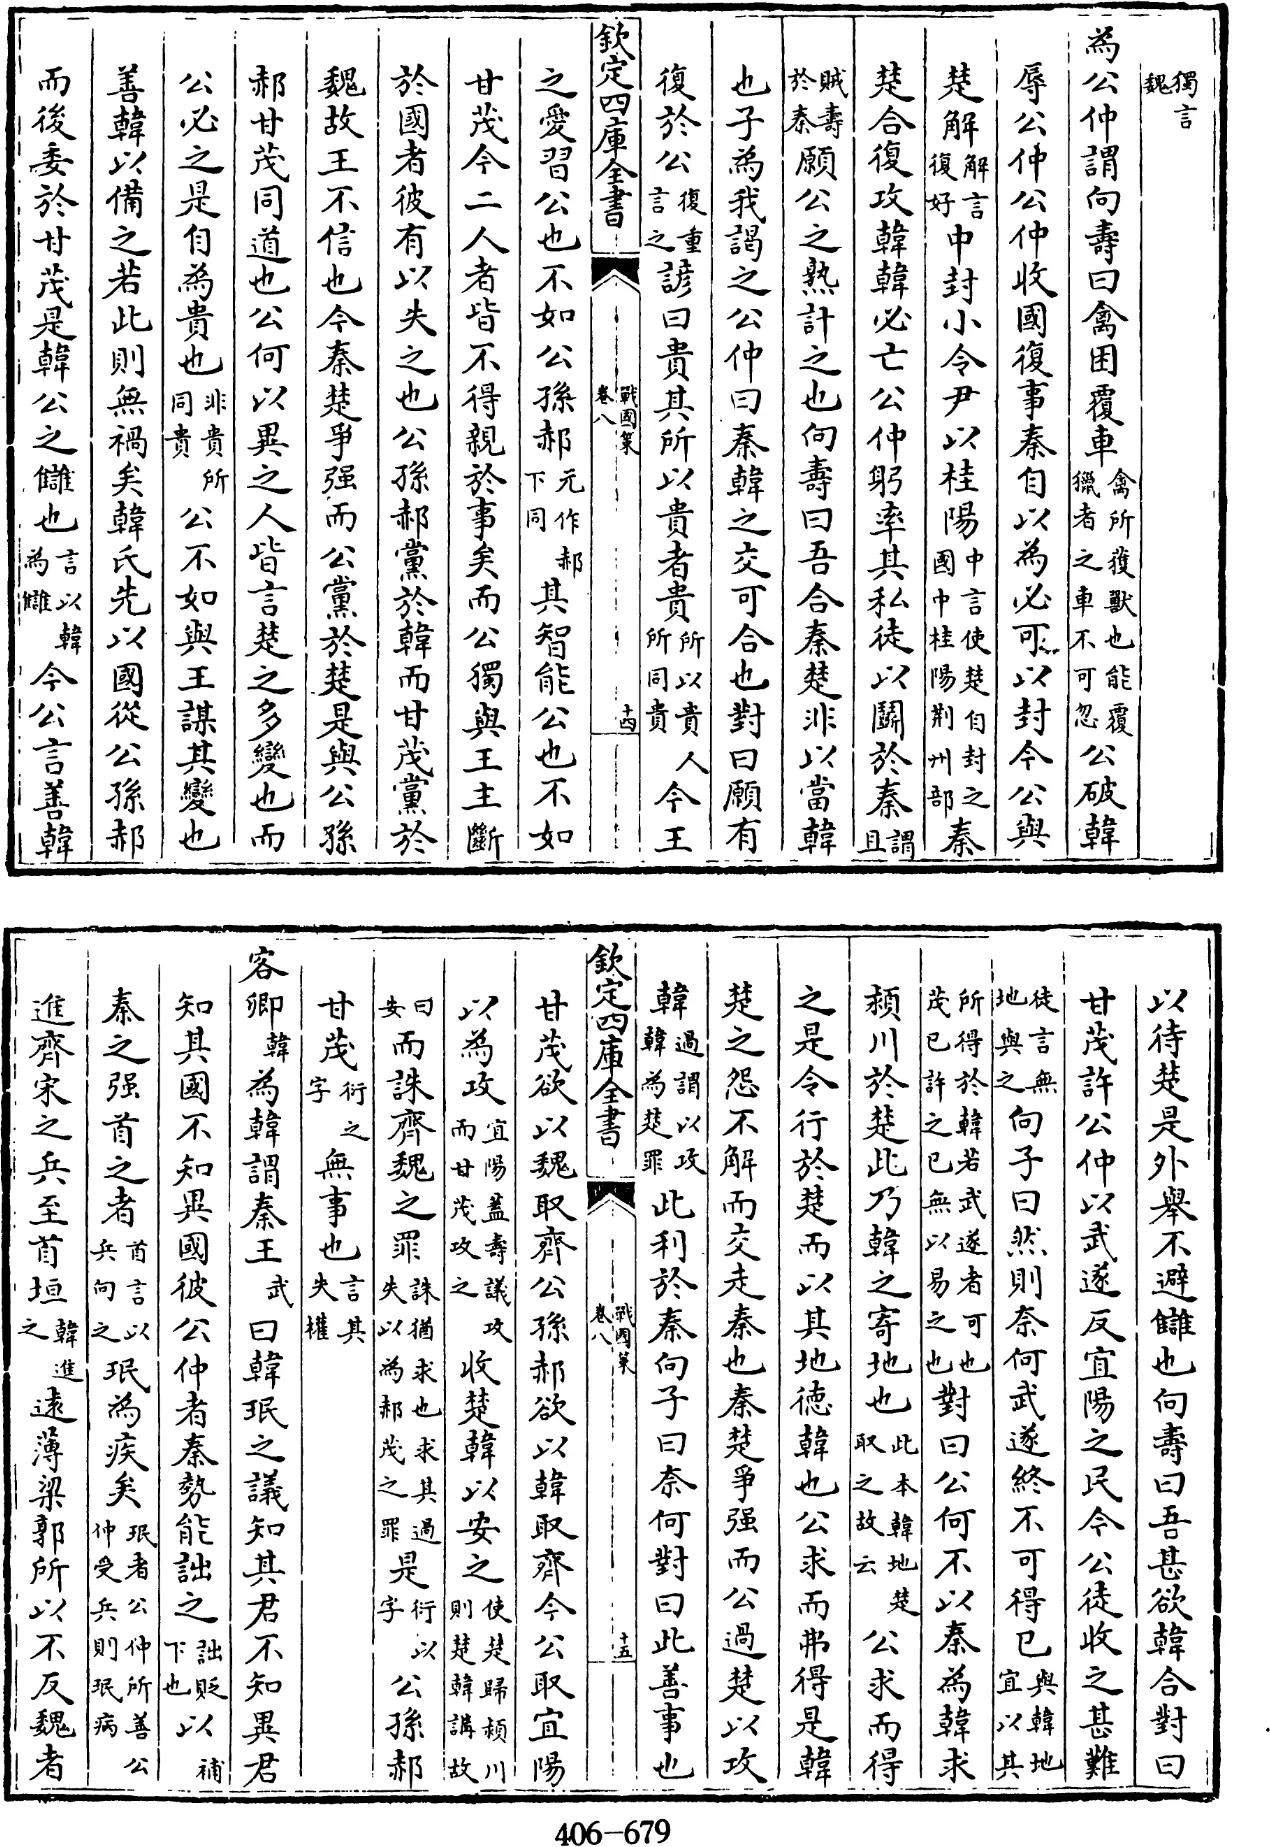 獨言魏
為公仲謂向壽曰禽困覆車禽所獲獸也能覆獵者之車不可忽公破韓
辱公仲公仲收國復事秦自以為必可以封今公與
楚解解言復好中封小令尹以桂陽中言使楚自封之國中桂陽荆州部秦
楚合復攻韓韓必亡公仲躬率其私徒以鬭於秦謂且
賊壽於秦願公之熟計之也向壽曰吾合秦楚非以當韓
也子為我謁之公仲曰秦韓之交可合也對曰願有
復於公復重言之諺曰貴其所以貴者貴所以貴人所同貴今王
欽定四庫全書
戰國策
卷八
十四
之愛習公也不如公孫郝元作郝下同其智能公也不如
甘茂今二人者皆不得親於事矣而公獨與王主斷
於國者彼有以失之也公孫郝黨於韓而甘茂黨於
魏故王不信也今秦楚爭强而公黨於楚是與公孫
郝甘茂同道也公何以異之人皆言楚之多變也而
公必之是自為貴也非貴所同貴公不如與王謀其變也
善韓以備之若此則無禍矣韓氏先以國從公孫郝
而後委於甘茂是韓公之讎也言以韓為讎今公言善韓
以待楚是外舉不避讎也向壽曰吾甚欲韓合對曰
甘茂許公仲以武遂反宜陽之民今公徒收之甚難
徒言無地與之向子曰然則奈何武遂終不可得已與韓地宜以其
所得於韓若武遂者可也茂已許之已無以易之也對曰公何不以秦為韓求
潁川於楚此乃韓之寄地也此本韓地楚取之故云公求而得
之是令行於楚而以其地德韓也公求而弗得是韓
楚之怨不解而交走秦也秦楚爭强而公過楚以攻
韓過謂以攻韓為楚罪此利於秦向子曰奈何對曰此善事也
欽定四庫全書
戰國策
卷八
十五
甘茂欲以魏取齊公孫郝欲以韓取齊今公取宜陽
以為攻宜陽蓋壽議攻而甘茂攻之收楚韓以安之使楚歸潁川則楚韓講故
曰安而誅齊魏之罪誅猶求也求其過失以為郝茂之罪是衍以字公孫郝
甘茂衍之字無事也言其失權
客卿韓為韓謂秦王武曰韓珉之議知其君不知異君
知其國不知異國彼公仲者秦勢能詘之詘貶下也以補
秦之强首之者首言以兵向之珉為疾矣珉者公仲所善公仲受兵則珉病
進齊宋之兵至首垣韓進之遠薄梁郭所以不反魏者
406-679